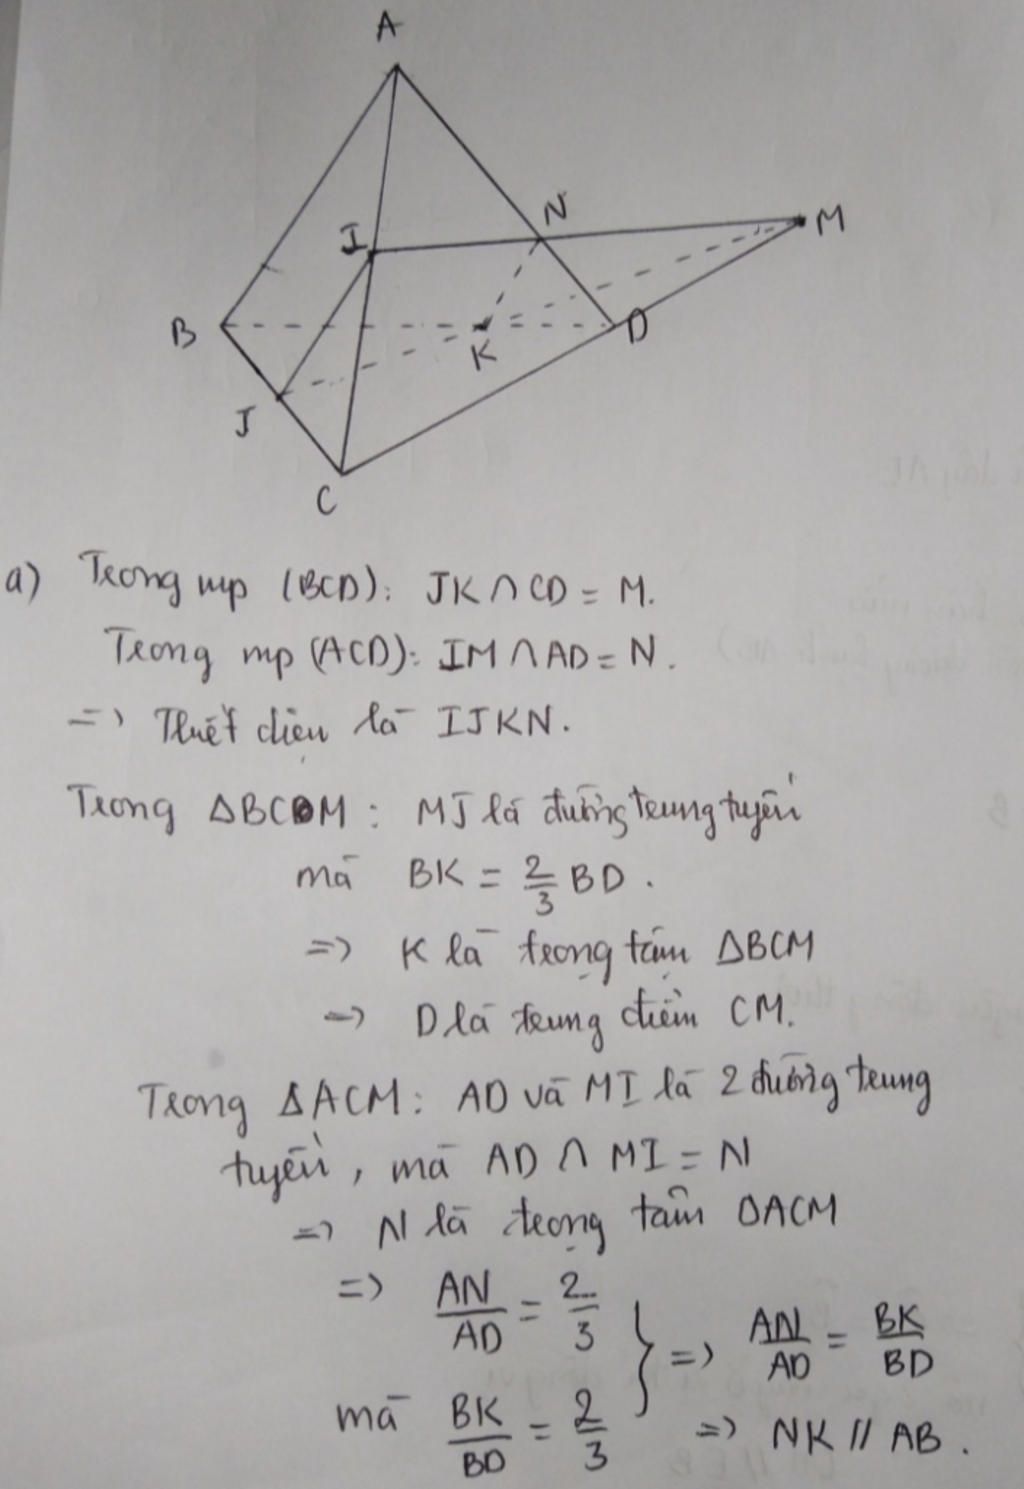 A
N
M
I
B
K
D
J
C
a) Trong mp (BCD): JK ∩ CD = M.
Trong mp (ACD): IM ∩ AD = N.
=> Thiết diện là IJKN.
Trong ΔBCM: MJ là đường trung tuyến
mà BK = 2/3 BD.
=> K là trọng tâm ΔBCM
=> D là trung điểm CM.
Trong ΔACM: AD và MI là 2 đường trung
tuyến, mà AD ∩ MI = N
=> N là trọng tâm ΔACM
=> AN/AD = 2/3
mà BK/BD = 2/3
} => AN/AD = BK/BD
=> NK // AB.